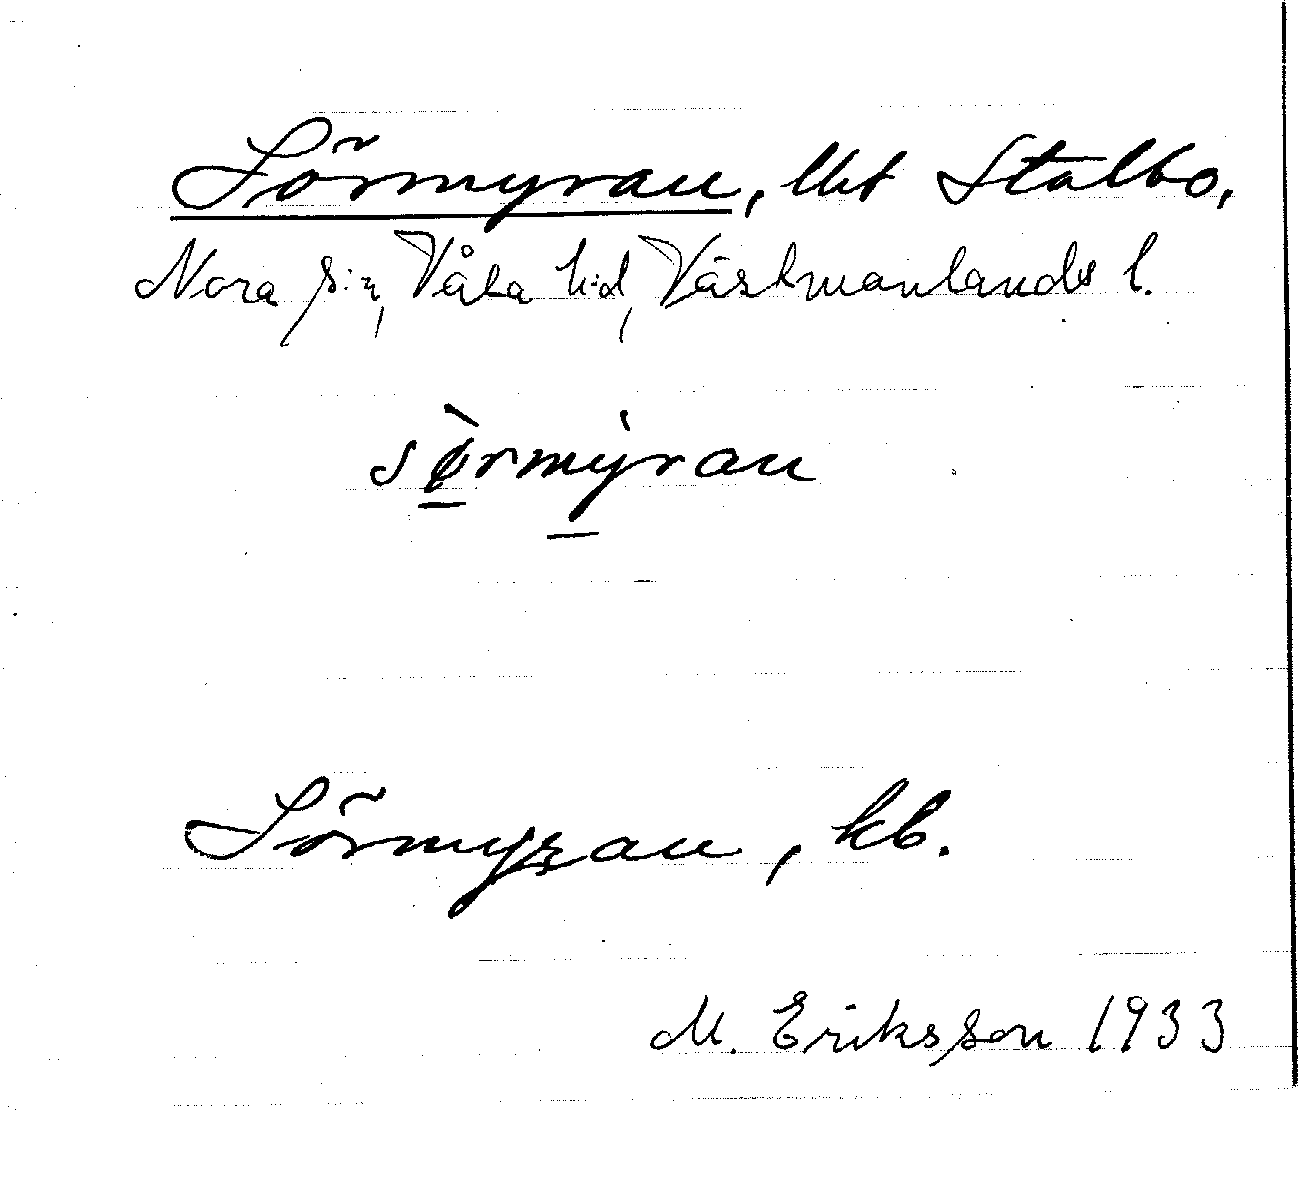 Sörmyran, lht Stalbo,
Nora s:n, Våla h:d, Västmanlands l.
sø̀rmỳran
Sörmyran, kb.
M. Eriksson 1933